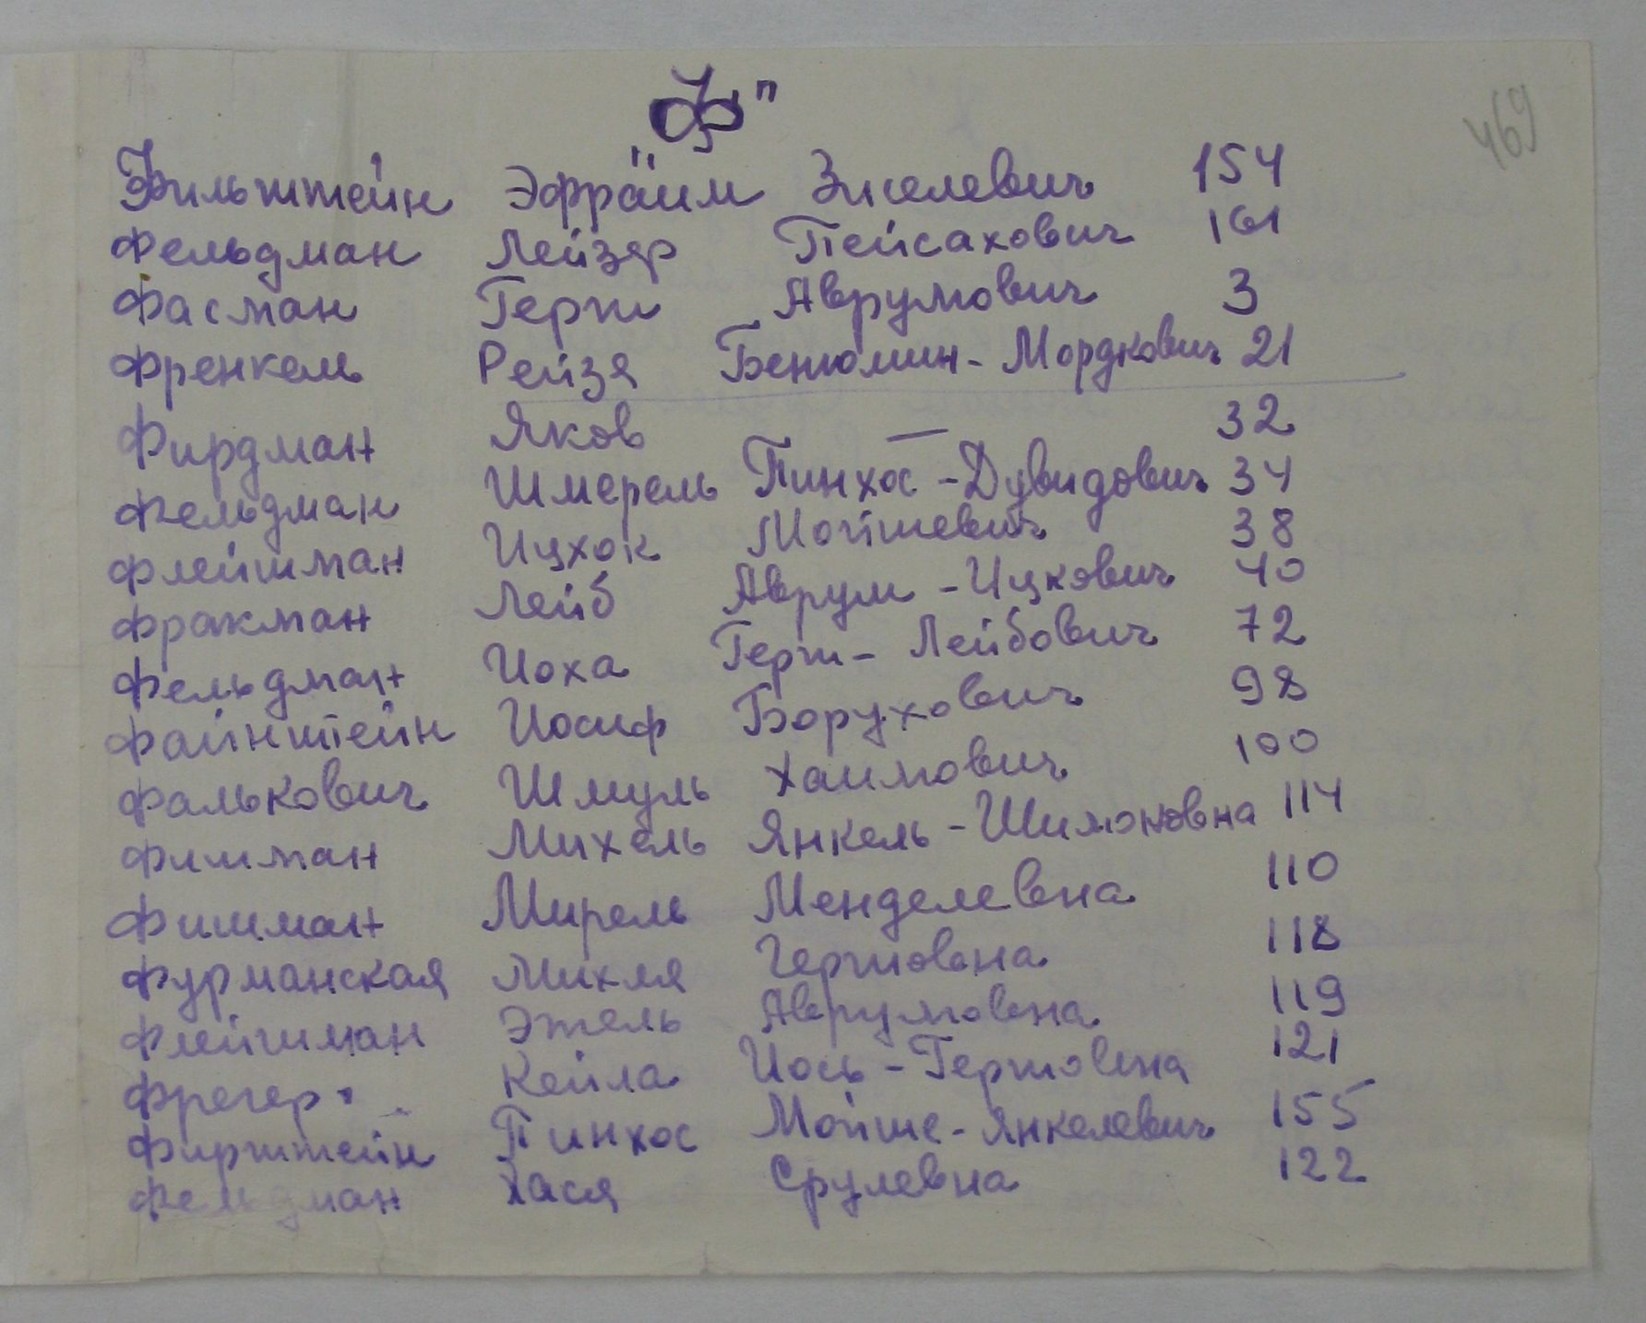 „Ф"
469
Фильштейн Эфраим Зиселевич 154
Фельдман Лейзер Пейсахович 161
Фасман Герш Аврумович 3
Френкель Рейзя Бенюмин-Мордкович 21
Фирдман Яков — 32
Фельдман Шмерель Пинхос-Дувидович 34
Флейшман Ицхок Мойшевич 38
Фракман Лейб Аврум-Ицкович 40
Фельдман Иоха Герш-Лейбович 72
Файнштейн Иосиф Борухович 98
Фалькович Шмуль Хаимович 100
Фишман Михель Янкель-Шимоновна 114
Фишман Мирель Менделевна 110
Фурманская Михля Гершовна 118
Флейшман Этель Аврумовна 119
Фрегер Кейла Иось-Гершовна 121
Фирштейн Пинхос Мойше-Янкелевич 155
Фельдман Хася Срулевна 122